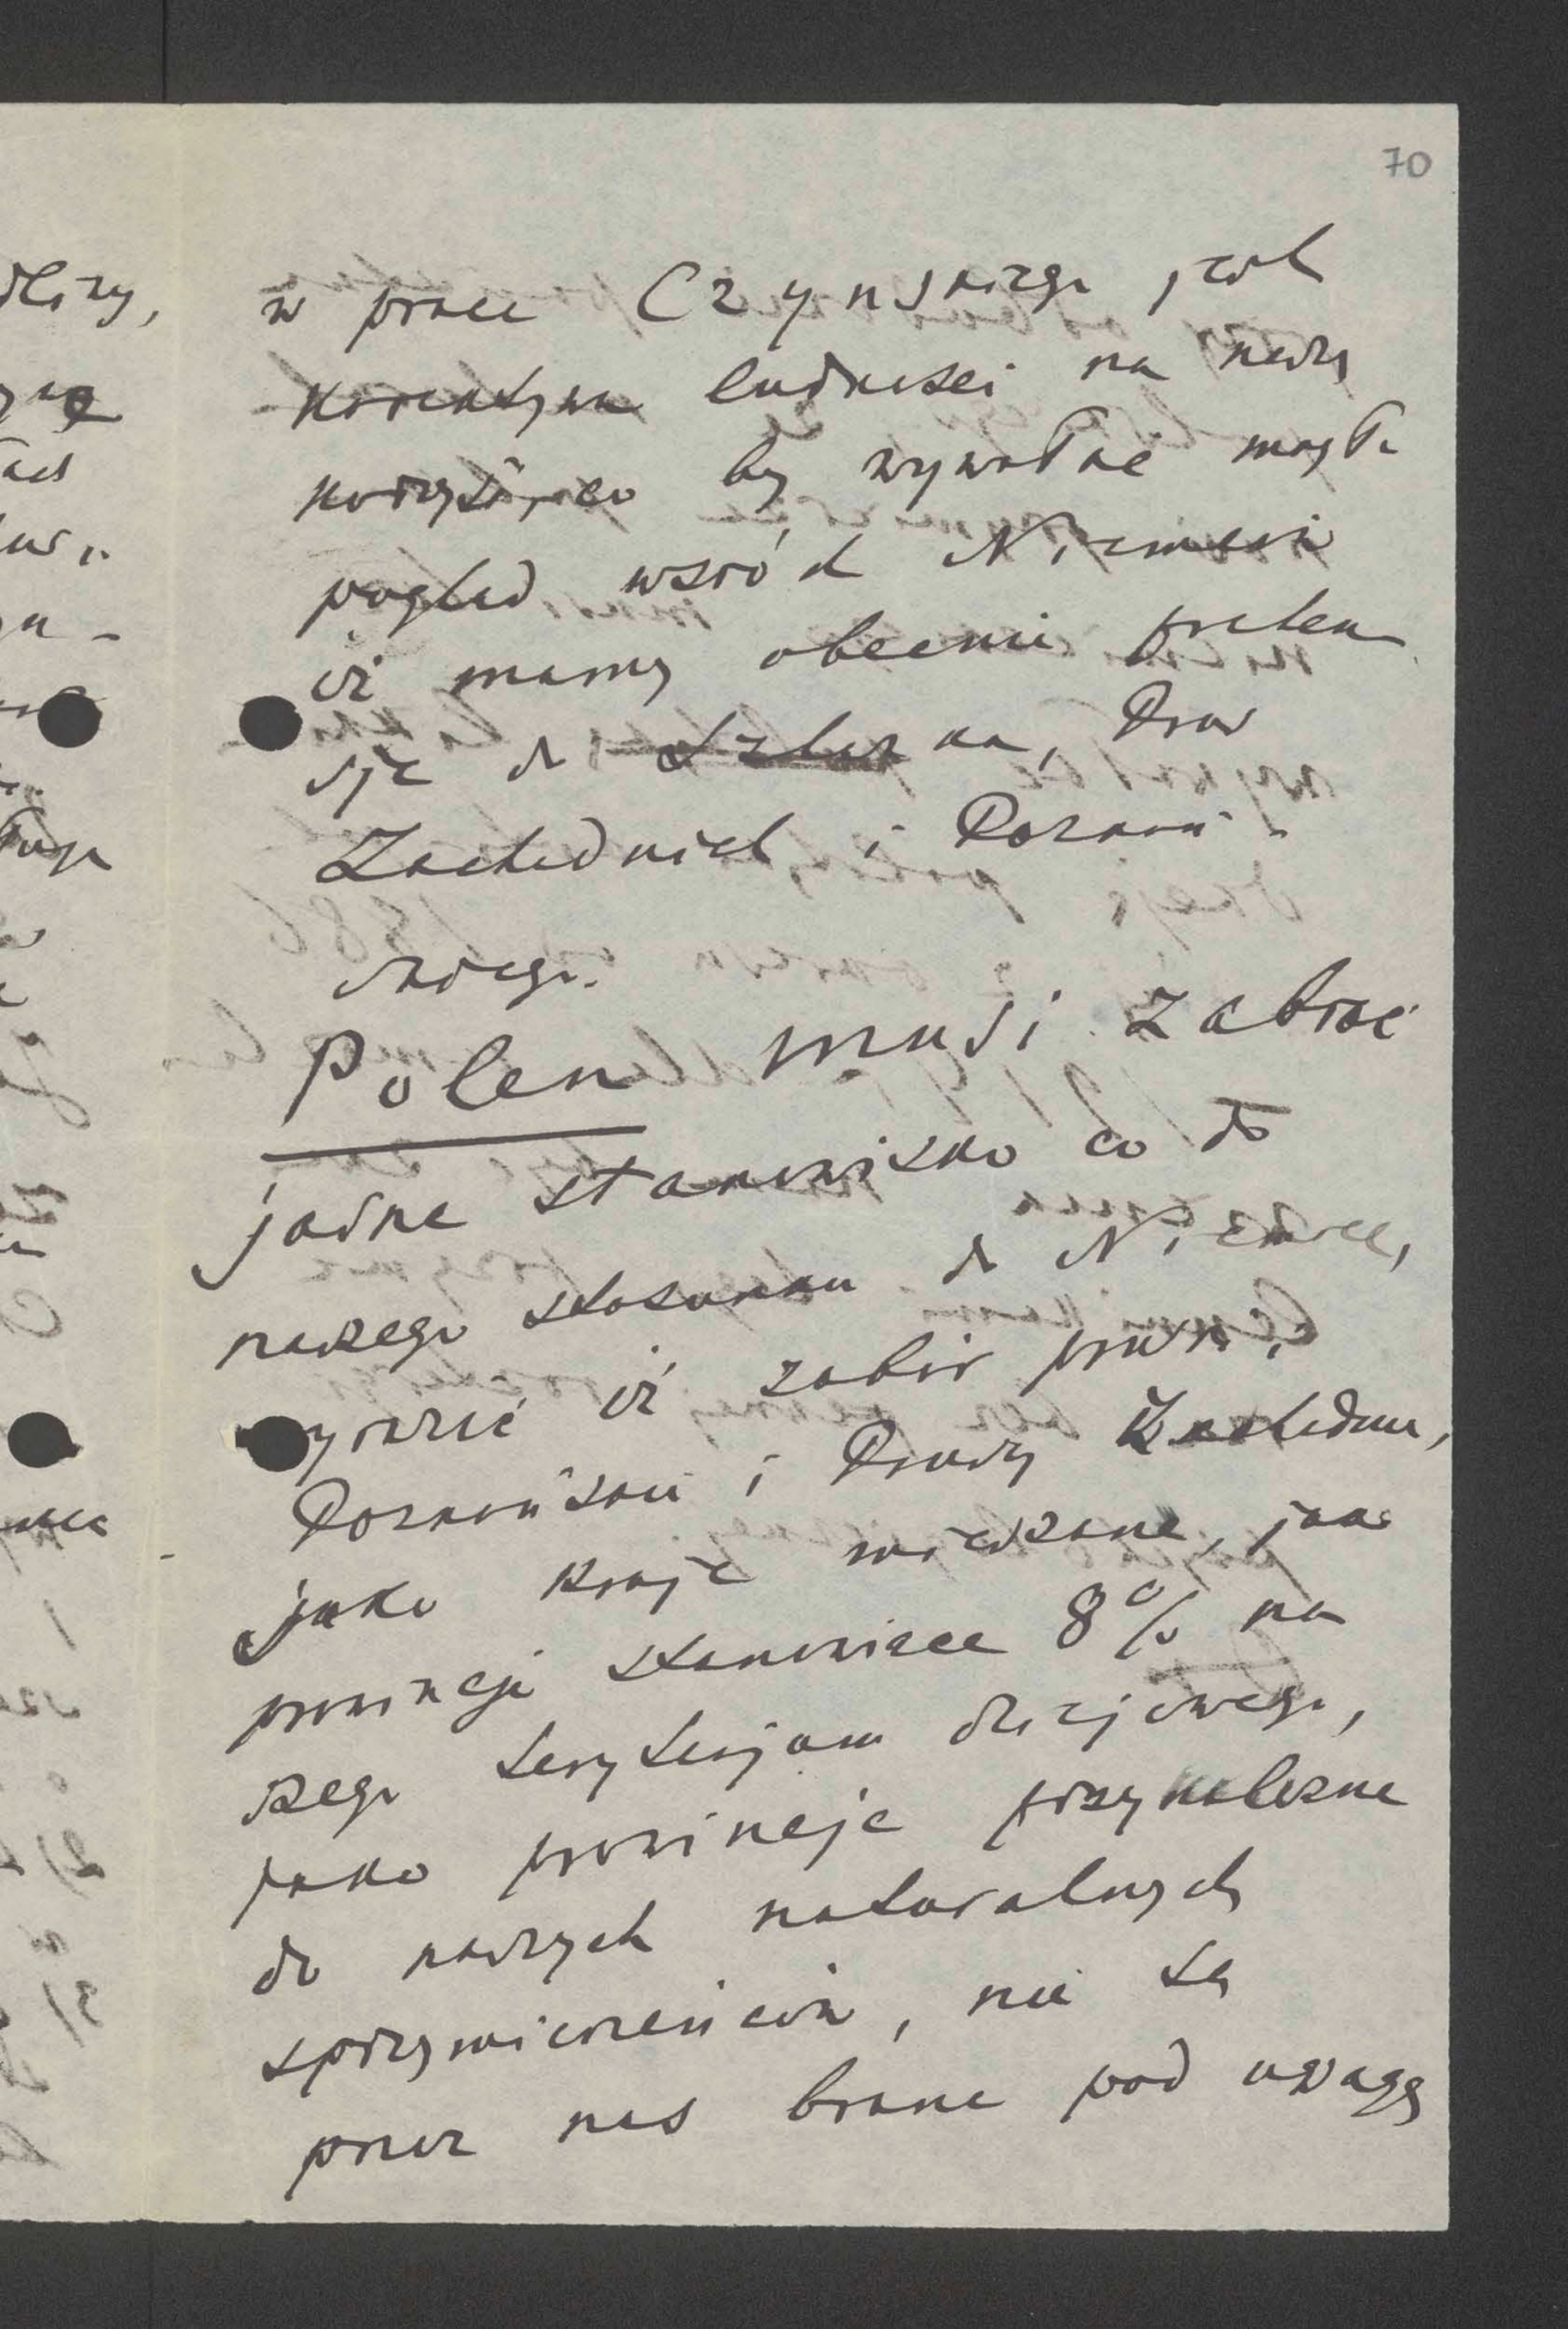 70
w prace Czynskiego jest
ludności na naszą
korzyść, co by wywołać mogło
pogląd wśród Niemców
iż mamy obecnie preten
sje do Szląska, Prus
Zachodnich i Poznań-
skiego.
Polen musi zabrać
jasne stanowisko co do
naszego stosunku do Niemiec,
iż zabór pruski,
Poznańskie i Prusy Zachodnie,
jako kraje mieszane, jako
prowincje stanowiące 8% na
szego terytorjum dziejowego,
jako prowincje przynależne
do naszych naturalnych
sprzymierzeńców, nie są
przez nas brane pod uwagę